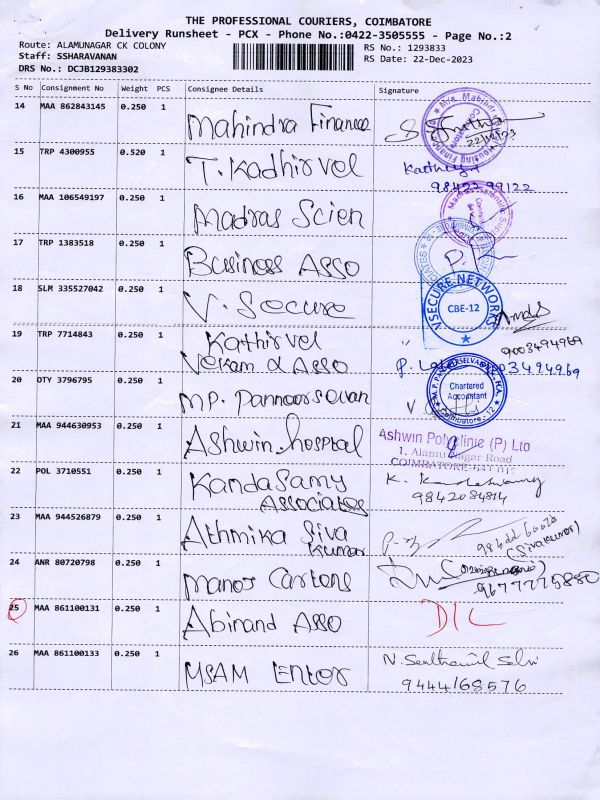 THE PROFESSIONAL COURIERS, COIMBATORE
Delivery Runsheet - PCX - Phone No.:0422-3505555 - Page No.:2
Route: ALAMUNAGAR CK COLONY
RS No.: 1293833
Staff: SSHARAVANAN
RS Date: 22-Dec-2023
DRS No.: DCJB129383302
S No Consignment No Weight PCS Consignee Details Signature
14 MAA 862843145 0.250 1 Mahindra Finance
22/12/23
15 TRP 4300955 0.520 1 T. Kadhirvel
98422 99122
16 MAA 106549197 0.250 1 Madras Scien
17 TRP 1383518 0.250 1 Business Asso
18 SLM 335527042 0.250 1 V. Secure
VSECURE NETWORKS
CBE-12
19 TRP 7714843 0.250 1 Kathirvel
Vekam & Asso
9003494969
20 OTY 3796795 0.250 1 MP. Pannarselvan
Chartered
Accountant
Coimbatore - 12
21 MAA 944630953 0.250 1 Ashwin hospital
Ashwin Polyclinic (P) Ltd
1, Alamu Nagar Road
COIMBATORE-641 012
22 POL 3710551 0.250 1 Kandasamy
Associates
K. Kandaswamy
9842084814
23 MAA 944526879 0.250 1 Athmika Siva
Kumar
(Sivakumar)
24 ANR 80720798 0.250 1 Manos Cartons
9677775880
25 MAA 861100131 0.250 1 Abinand Asso D/L
26 MAA 861100133 0.250 1 MSAM Enter
N. Senthamil Selvi
9444168576